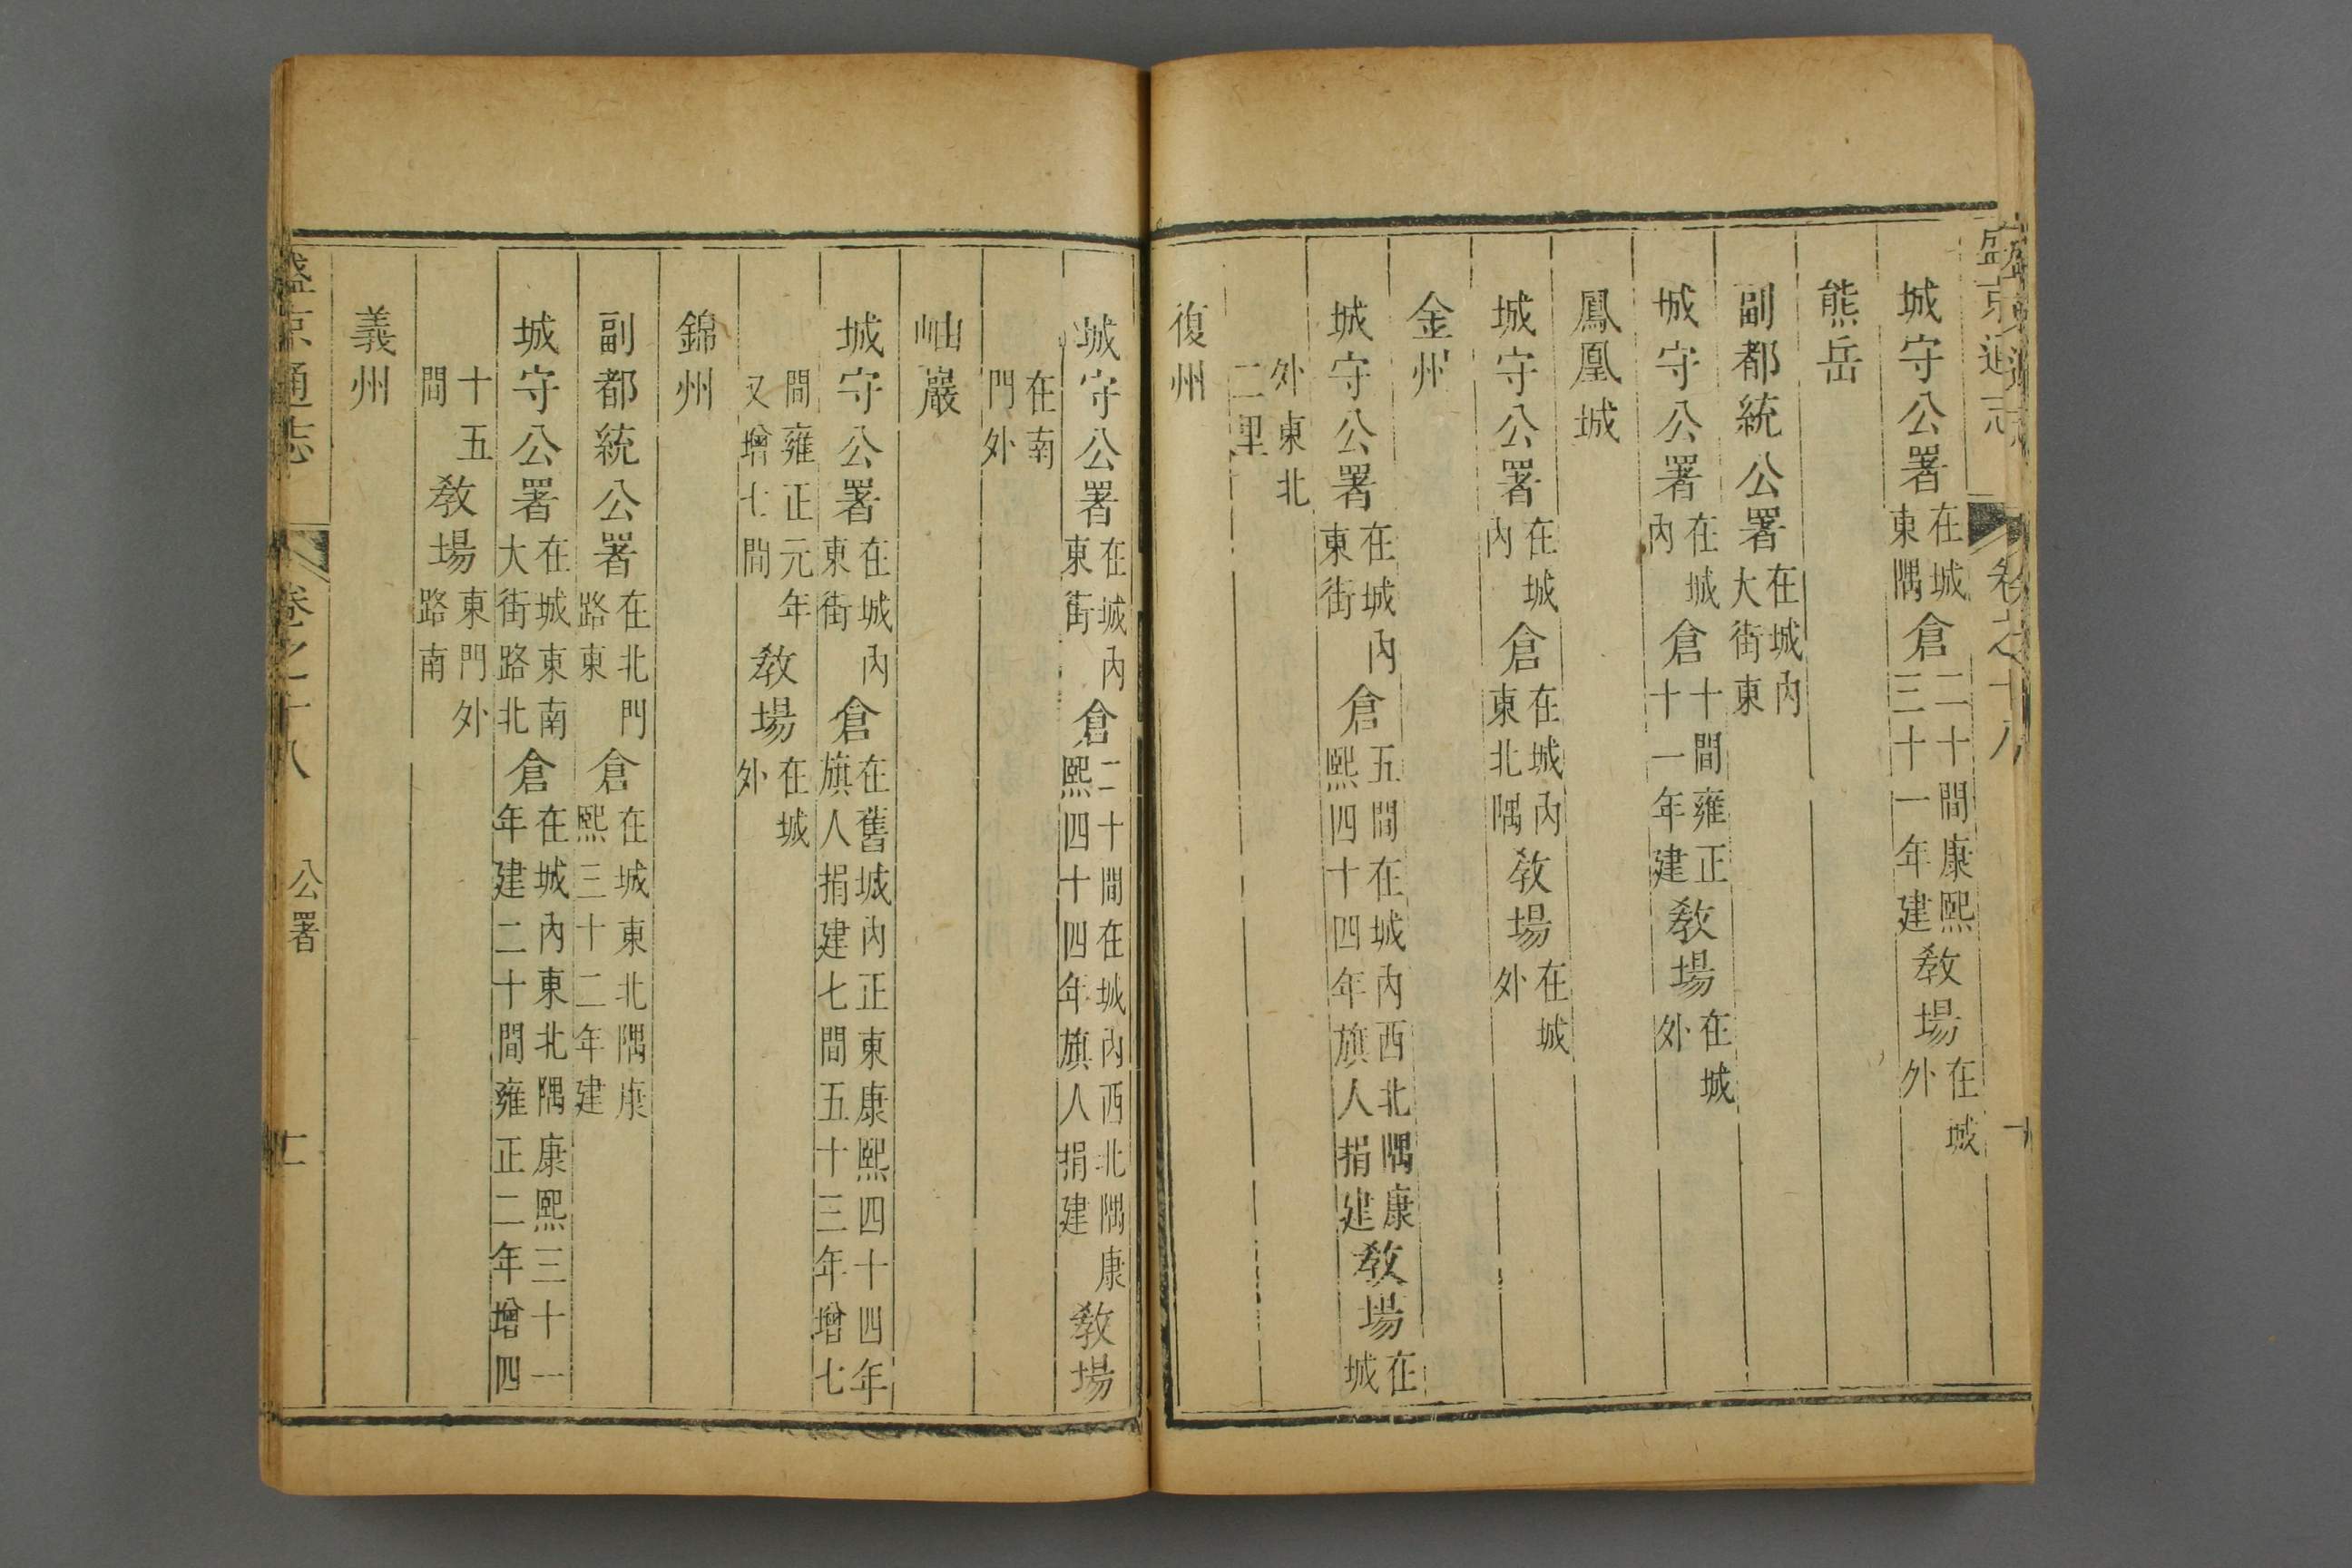 盛京通志 卷之十八 十
城守公署在城東隅倉二十間康熙三十一年建教場在城外
熊岳
副都統公署在城內大街東
城守公署在城內倉十間雍正十一年建教場在城外
鳳凰城
城守公署在城內倉在城內東北隅教場在城外
金州
城守公署在城內東街倉五間在城內西北隅康熙四十四年旗人捐建教場在城
外東北二里
復州
城守公署在城內東街倉二十間在城內西北隅康熙四十四年旗人捐建教場
在南門外
岫巖
城守公署在城內東街倉在舊城內正東康熙四十四年旗人捐建七間五十三年增七
間雍正元年又增七間教場在城外
錦州
副都統公署在北門路東倉在城東北隅康熙三十二年建
城守公署在城東南大街路北倉在城內東北隅康熙三十一年建二十間雍正二年增四
十五間教場東門外路南
義州
盛京通志 卷之十八 公署 十一